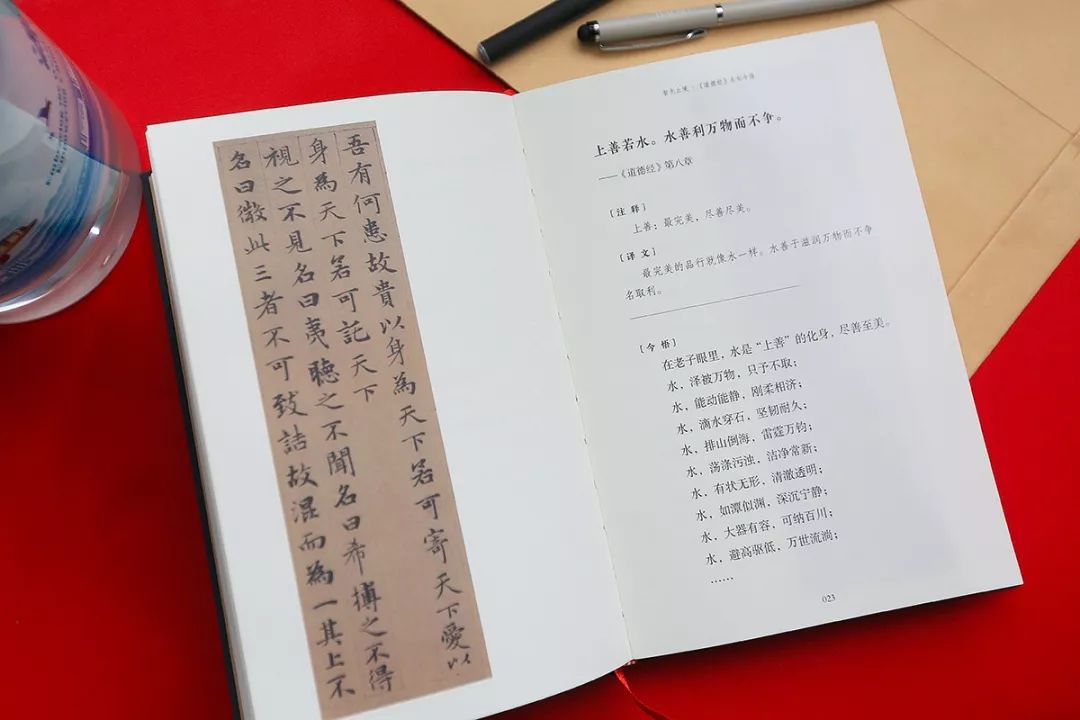 吾有何患故貴以身為天下若可寄天下愛以
身為天下若可託天下
視之不見名曰夷聽之不聞名曰希搏之不得
名曰微此三者不可致詰故混而為一其上不
《道德经》名句今悟
上善若水。水善利万物而不争。
——《道德经》第八章
［注 释］
上善：最完美，尽善尽美。
［译 文］
最完美的品行就像水一样。水善于滋润万物而不争
名取利。
［今 悟］
在老子眼里，水是“上善”的化身，尽善至美。
水，泽被万物，只予不取；
水，能动能静，刚柔相济；
水，滴水穿石，坚韧耐久；
水，排山倒海，雷霆万钧；
水，荡涤污浊，洁净常新；
水，有状无形，清澈透明；
水，如潭似渊，深沉宁静；
水，大器有容，可纳百川；
水，避高驱低，万世流淌；
……
023